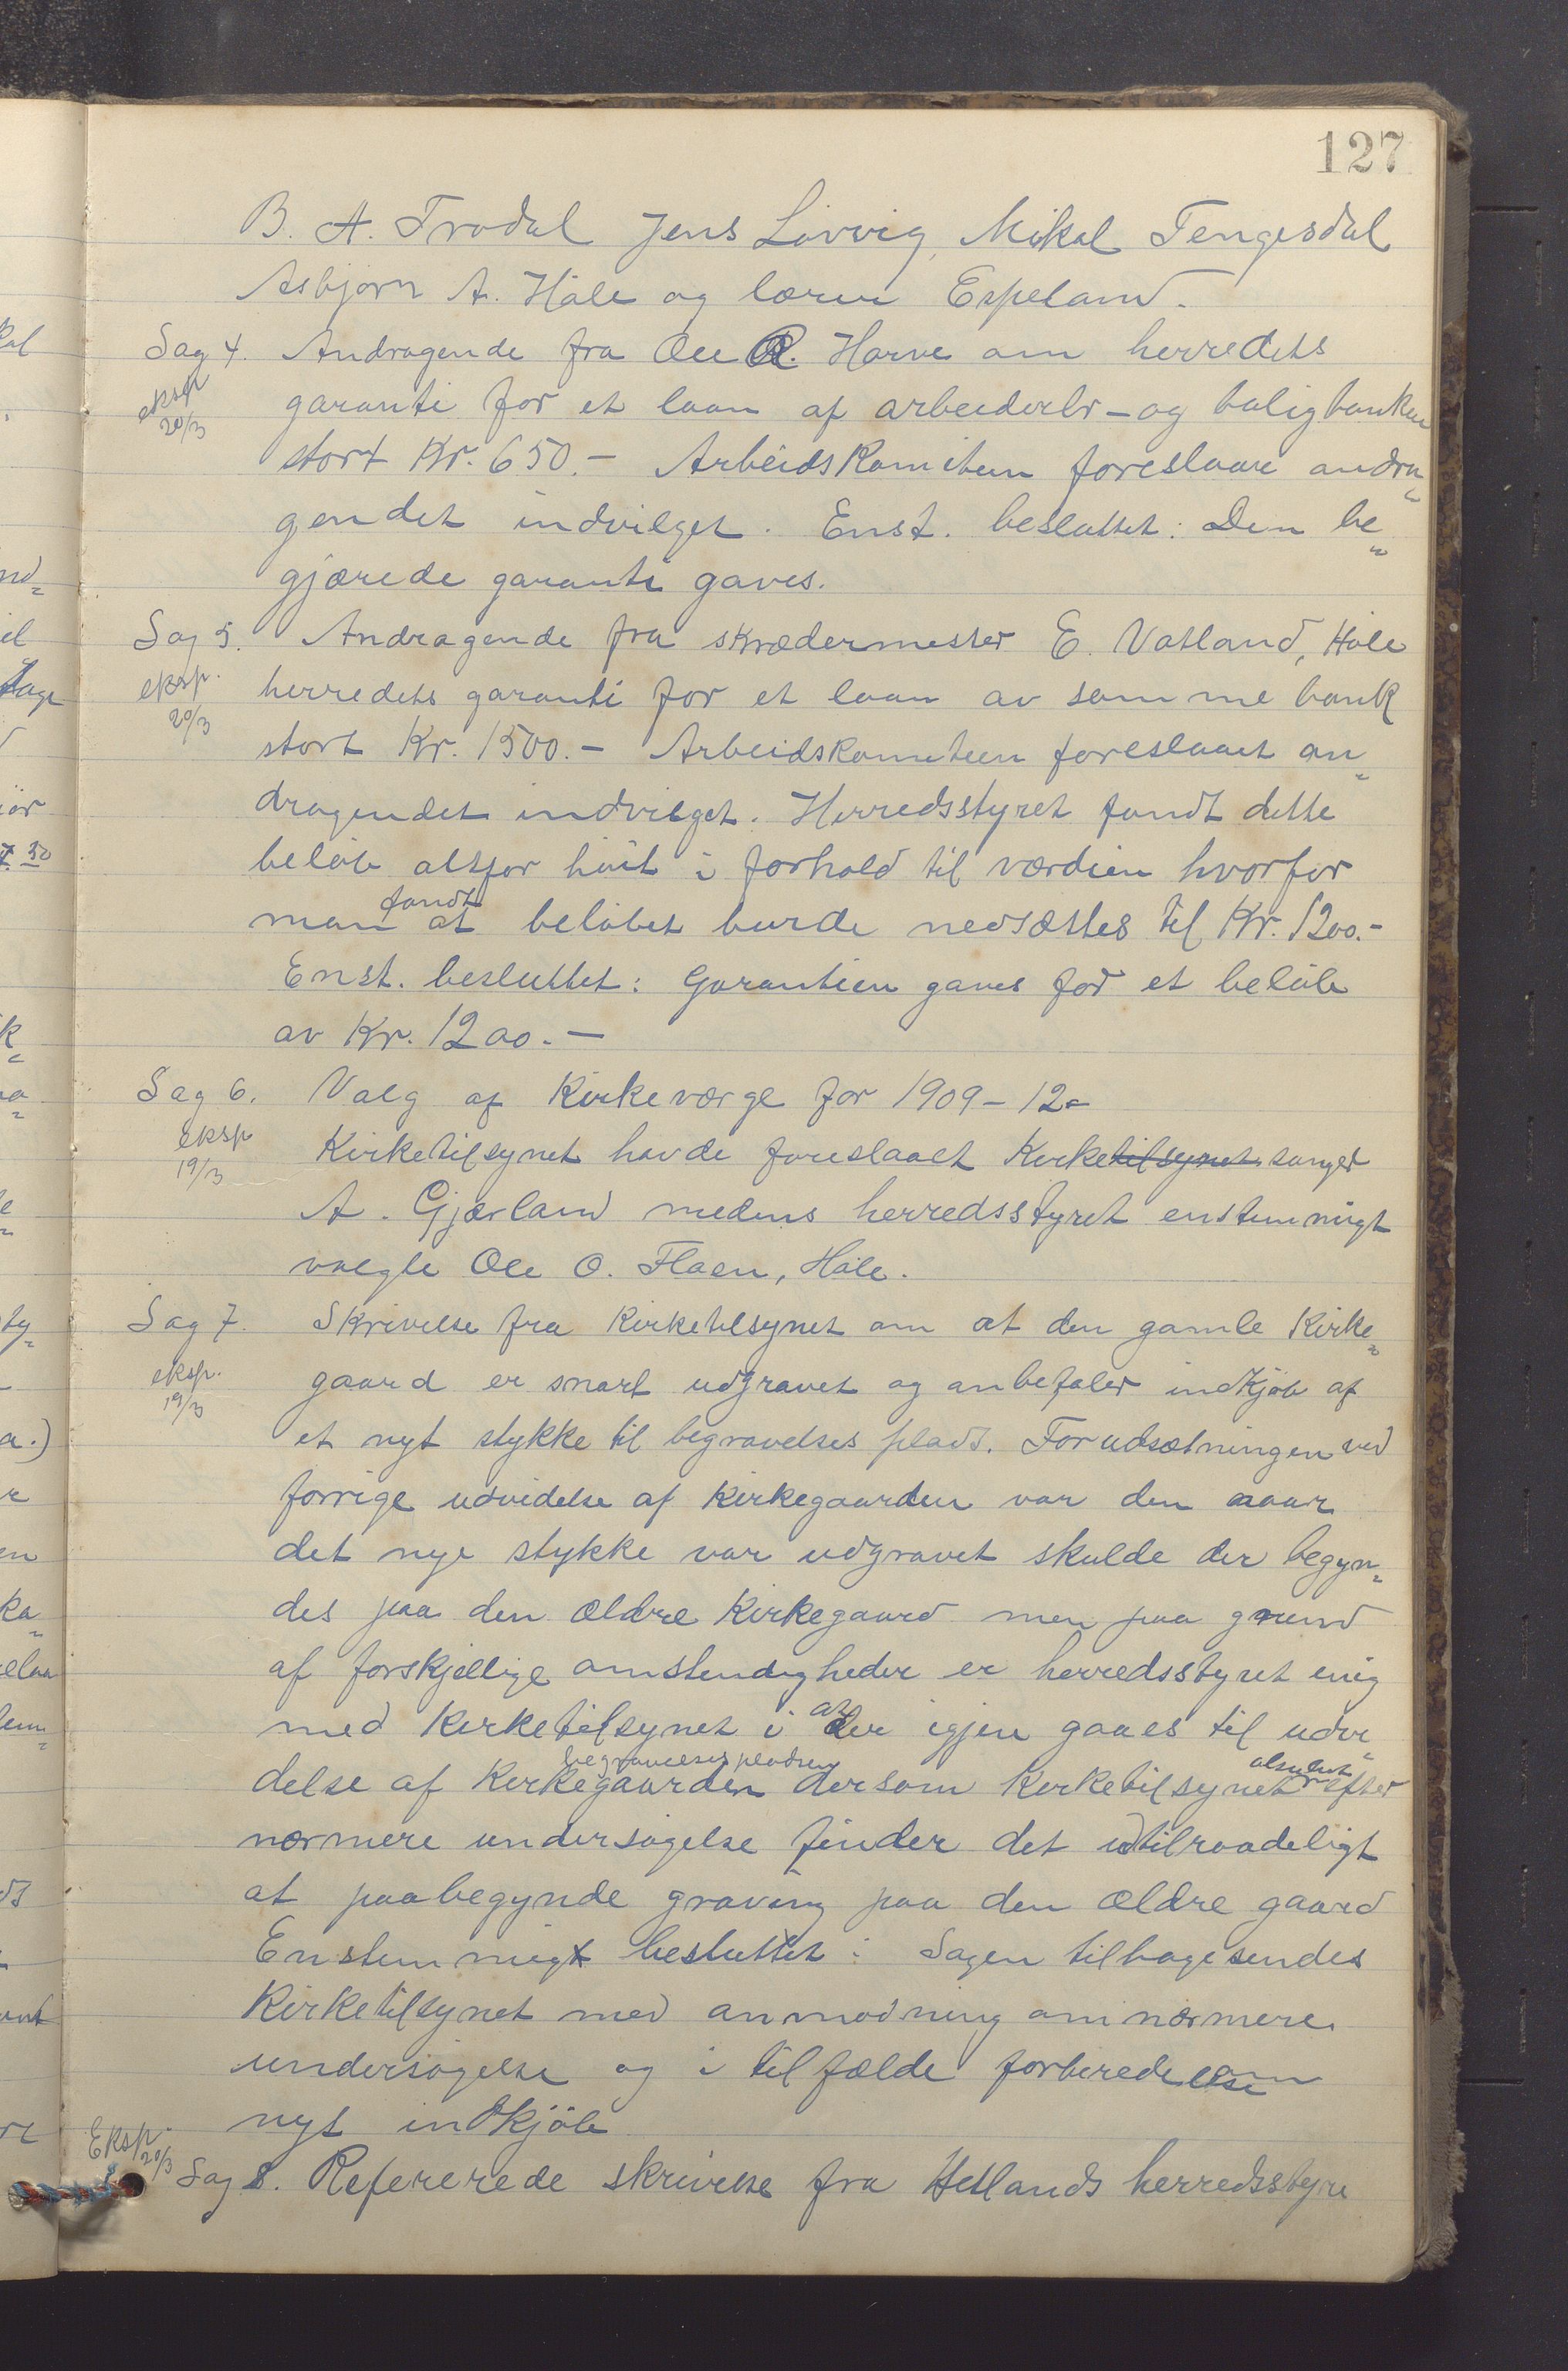 127
B. A. Trodal Jens Løvvig, Mikal Tengesdal
Asbjørn A. Håle og lærer Espeland.
Sag 4. Andragende fra Ole R. Harve om herredets
eksp 20/3
garanti for et laan af arbeider- og boligbanken
stort Kr. 650.- Arbeidskomiteen foreslaar andra
gendet indvilget. Enst. besluttet: Den be
gjærede garanti gaves.
Sag 5. Andragende fra skrædermester E. Vatland, Håle
eksp. 20/3
herredets garanti for et laan av samme bank
stort Kr. 1500.- Arbeidskomiteen foreslaaet an
dragendet indvilget. Herredsstyret fandt dette
beløb altfor høit i forhold til værdien hvorfor
man fandt at beløbet burde nedsættes til Kr. 1200.-
Enst. besluttet: Garantien gaves for et beløb
av Kr. 1200.-
Sag 6. Valg af Kirkeværge for 1909-12-
eksp 19/3
Kirketilsynet havde foreslaaet Kirketilsynet sanger
A. Gjærland medens herredsstyret enstemmigt
valgte Ole O. Flaen, Håle.
Sag 7. Skrivelse fra Kirketilsynet om at den gamle Kirke
eksp. 19/3
gaard er snart udgravet og anbefaler indkjøb af
et nyt stykke til begravelses plads. Forudsætningen ved
forrige udvidelse af Kirkegaarden var den naar
det nye stykke var udgravet skulde der begyn
des paa den ældre Kirkegaard men paa grund
af forskjellige omstendigheder er herredsstyret enig
med Kirketilsynet i at der igjen gaaes til udvi
delse af Kirkegaarden begravelsespladsen dersom Kirketilsynet absolut efter
nærmere undersøgelse finder det utilraadeligt
at paabegynde graving paa den ældre gaard
Enstemmigt besluttet: Sagen tilbagesendes
Kirketilsynet med anmodning om nærmere
undersøgelse og i tilfælde forberedelse
nyt indkjøb
Eksp. 20/3
Sag 8. Refererede skrivelse fra Hetlands herredsstyre